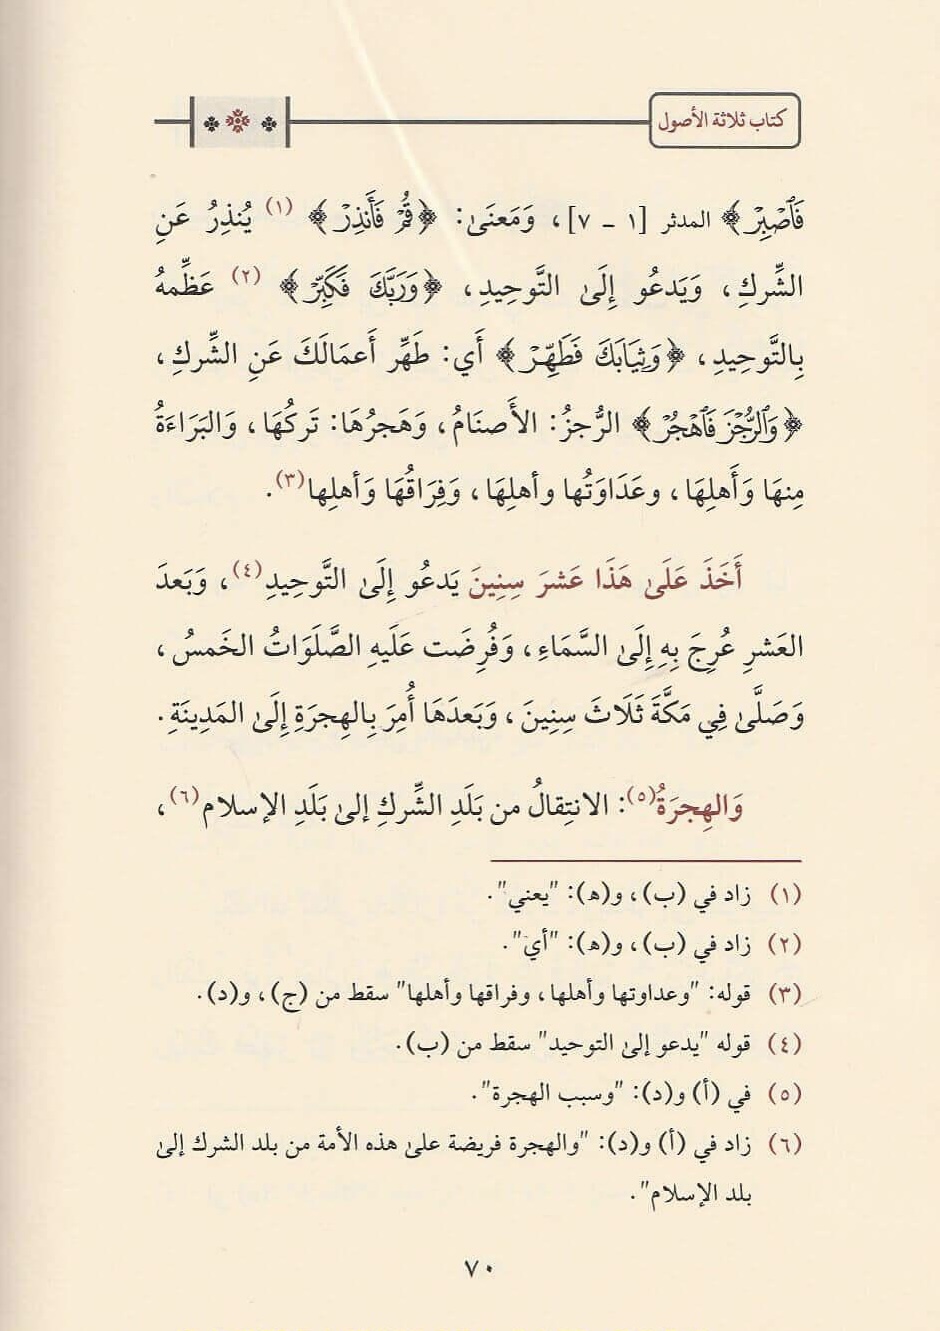 كتاب ثلاثة الأصول
فَٱصۡبِرۡ﴾ المدثر [١ ـ ٧]، وَمَعنَىٰ: ﴿قُمۡ فَأَنذِرۡ﴾ (١) يُنذِرُ عَنِ
الشِّركِ، وَيَدعُو إِلَىٰ التَّوحِيدِ، ﴿وَرَبَّكَ فَكَبِّرۡ﴾ (٢) عَظِّمهُ
بِالتَّوحِيدِ، ﴿وَثِيَابَكَ فَطَهِّرۡ﴾ أَي: طَهِّر أَعمَالَكَ عَنِ الشِّركِ،
﴿وَٱلرُّجۡزَ فَٱهۡجُرۡ﴾ الرُّجزُ: الأَصنَامُ، وَهَجرُهَا: تَركُهَا، وَالبَرَاءَةُ
مِنهَا وَأَهلِهَا، وعَدَاوَتُها وأَهلِهَا، وَفِرَاقُهَا وَأهلِها(٣).
أَخَذَ عَلَىٰ هَذَا عَشرَ سِنِينَ يَدعُو إِلَىٰ التَّوحِيدِ(٤)، وَبَعدَ
العَشرِ عُرِجَ بِهِ إِلَىٰ السَّمَاءِ، وَفُرِضَت عَلَيهِ الصَّلَوَاتُ الخَمسُ،
وَصَلَّىٰ فِي مَكَّةَ ثَلَاثَ سِنِينَ، وَبَعدَهَا أُمِرَ بِالهِجرَةِ إِلَىٰ المَدِينَةِ.
وَالهِجرَةُ(٥): الانتِقالُ من بَلَدِ الشِّركِ إلىٰ بَلَدِ الإسلام(٦)،
(١) زاد في (ب)، و(ه): "يعني".
(٢) زاد في (ب)، و(ه): "أي".
(٣) قوله: "وعداوتها وأهلها، وفراقها وأهلها" سقط من (ج)، و(د).
(٤) قوله "يدعو إلىٰ التوحيد" سقط من (ب).
(٥) في (أ) و(د): "وسبب الهجرة".
(٦) زاد في (أ) و(د): "والهجرة فريضة علىٰ هذه الأمة من بلد الشرك إلىٰ
بلد الإسلام".
٧٠